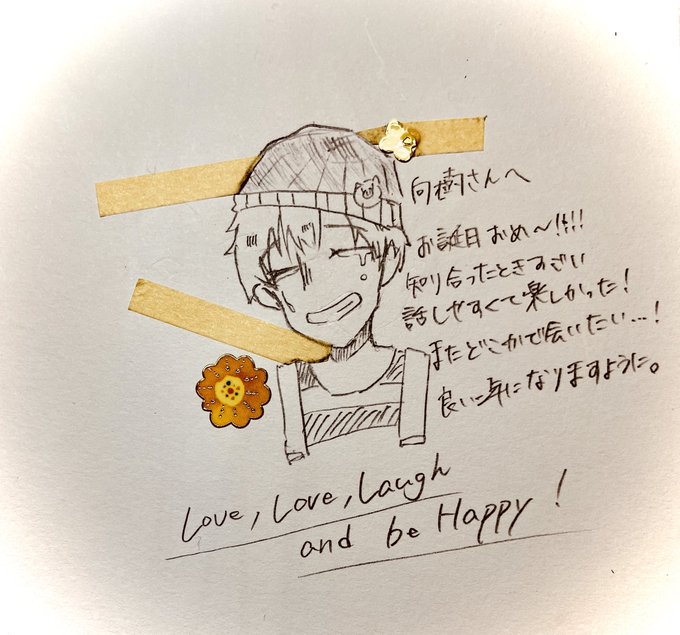 向樹さんへ
お誕日おめ〜!!!!
知り合ったときすごい
話しやすくて楽しかった!
またどこかで会いたい...!
良い年になりますように。
Love, Love, Laugh
and be Happy!